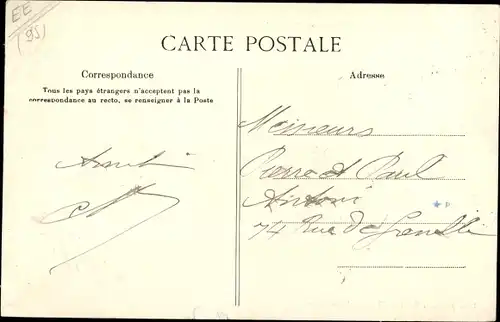 EE
(95)
CARTE POSTALE
Correspondance
Tous les pays étrangers n'acceptent pas la
correspondance au recto, se renseigner à la Poste
Adresse
Messieurs
Pierre et Paul
Antoni
74 Rue de Grenelle